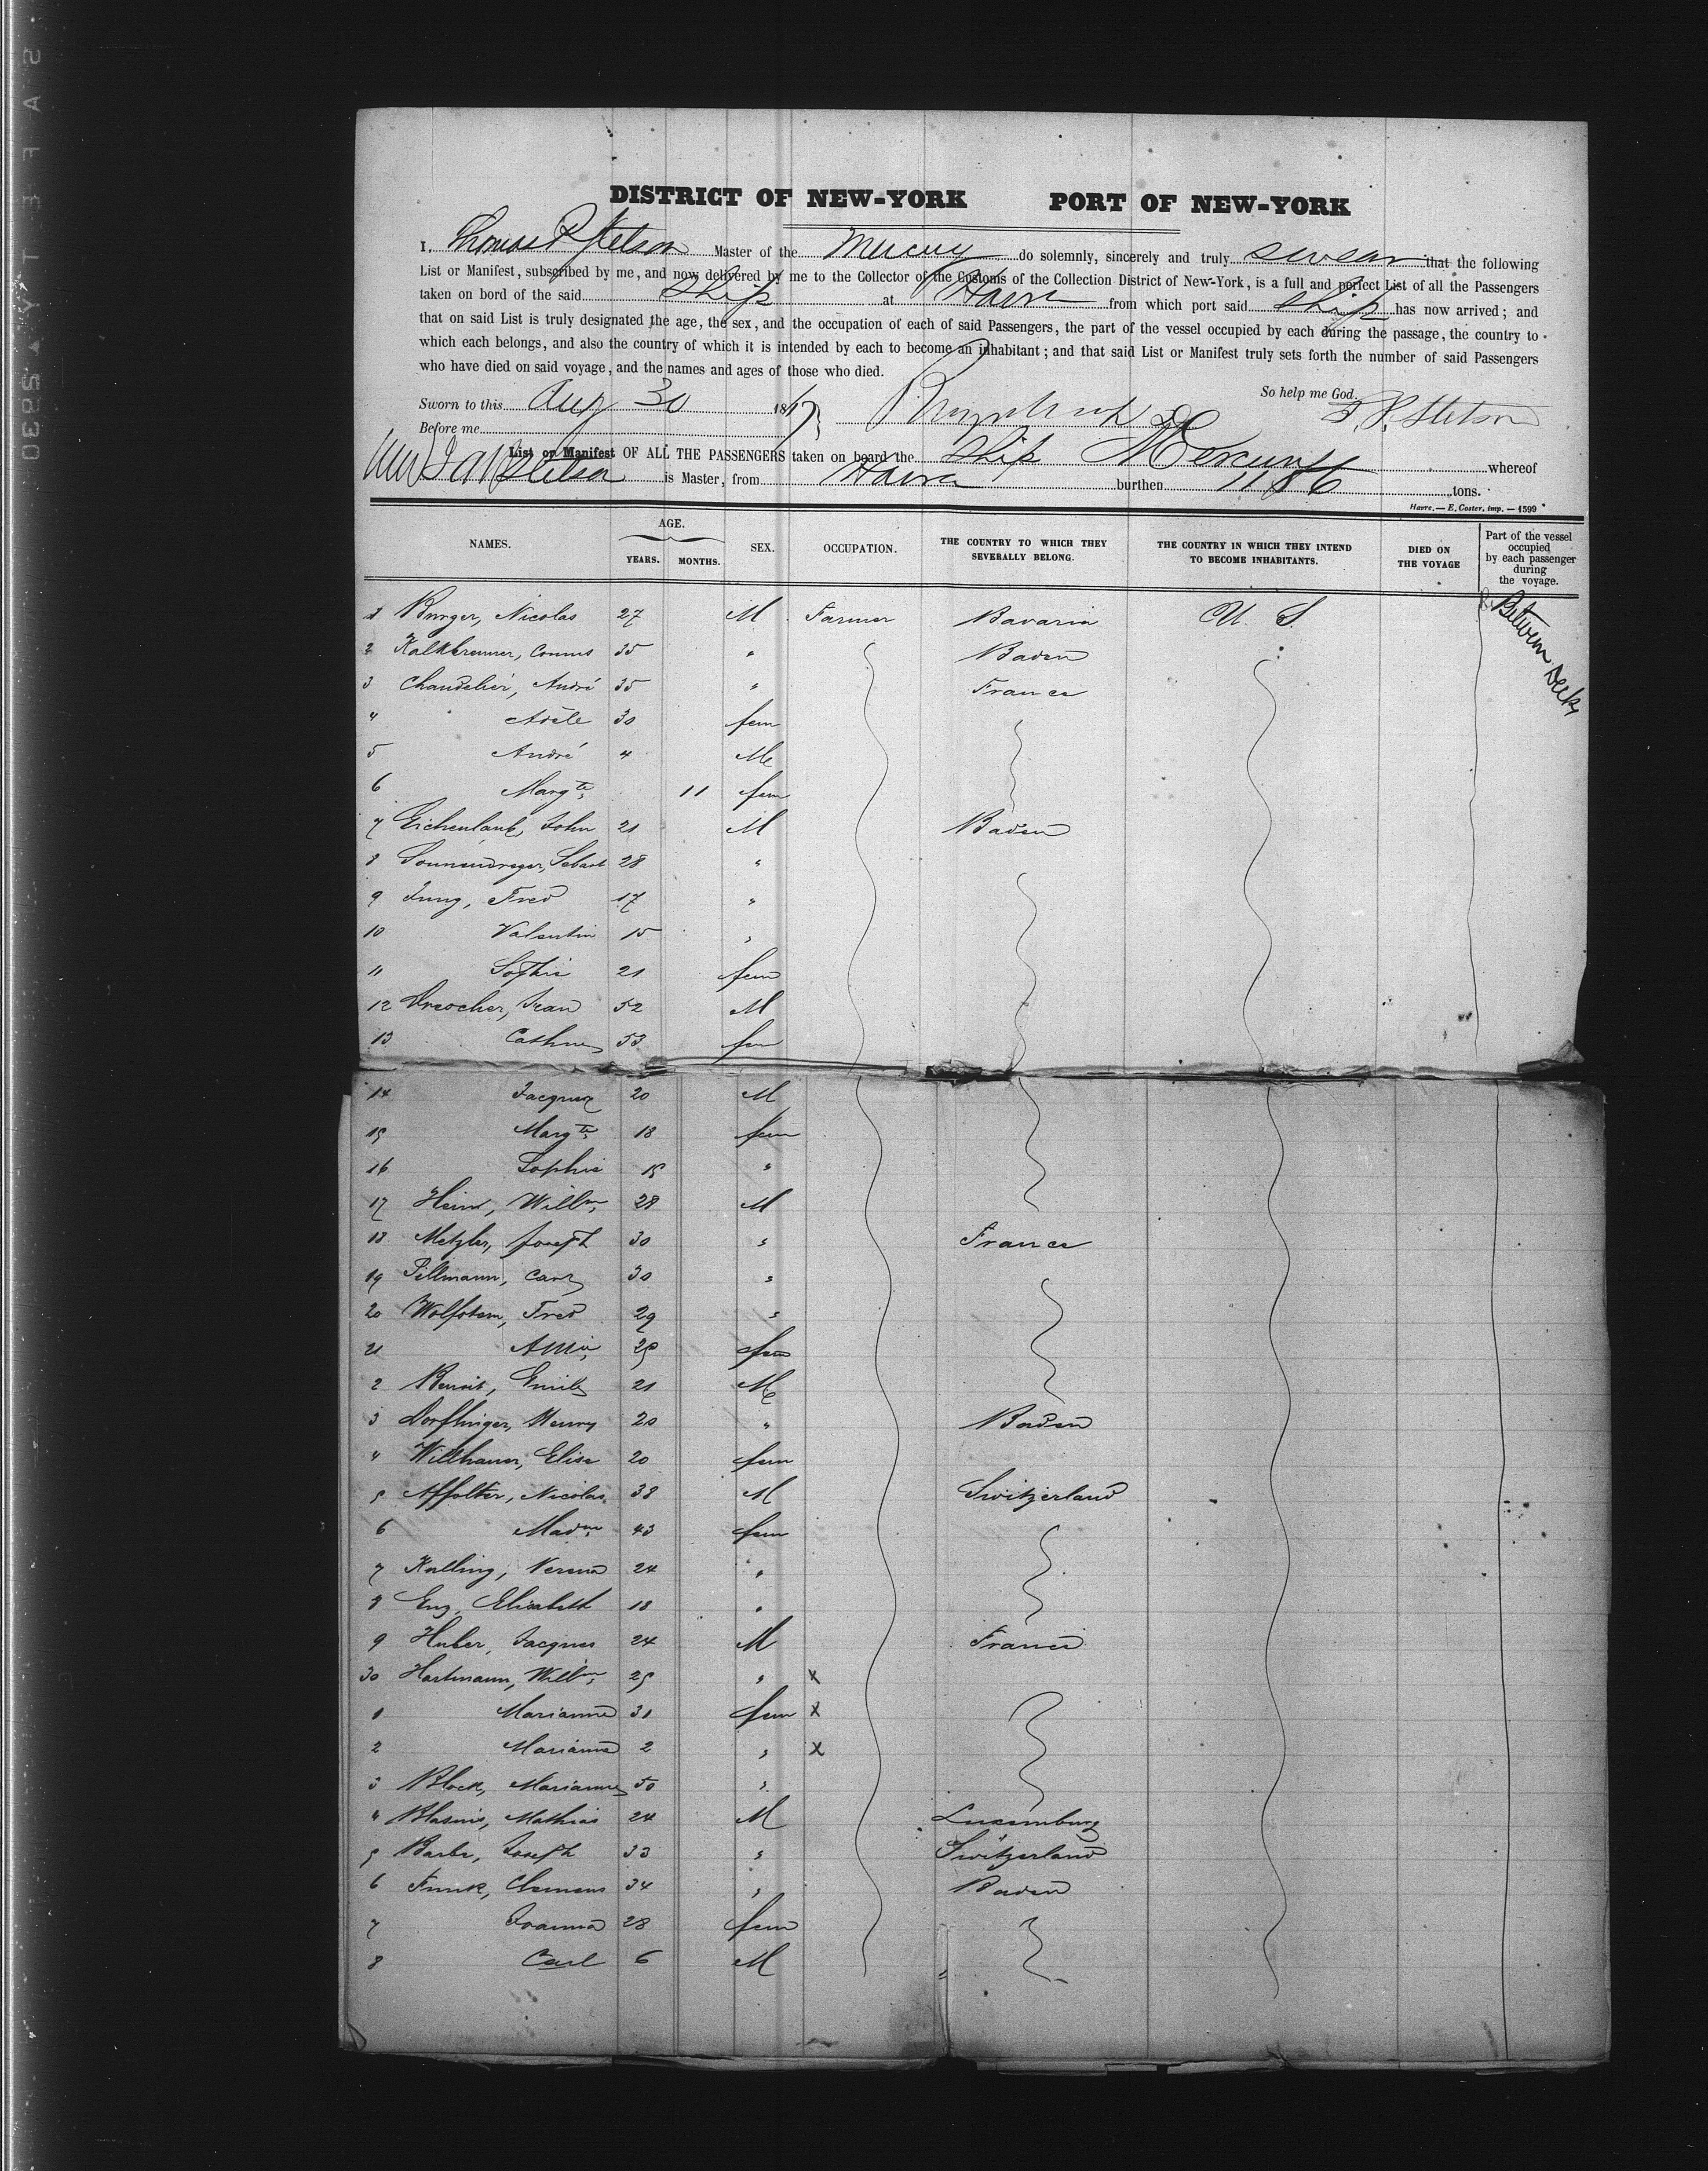 DISTRICT OF NEW-YORK PORT OF NEW-YORK
I, Thomas P. Stetson Master of the Mercury do solemnly, sincerely and truly swear that the following
List or Manifest, subscribed by me, and now delivered by me to the Collector of the Customs of the Collection District of New-York, is a full and perfect List of all the Passengers
taken on bord of the said Ship at Havre from which port said ship has now arrived; and
that on said List is truly designated the age, the sex, and the occupation of each of said Passengers, the part of the vessel occupied by each during the passage, the country to
which each belongs, and also the country of which it is intended by each to become an inhabitant; and that said List or Manifest truly sets forth the number of said Passengers
who have died on said voyage, and the names and ages of those who died.
So help me God.
Sworn to this Aug 30 1867 Stetson
Before me
List or Manifest OF ALL THE PASSENGERS taken on board the Ship Mercury whereof
Stetson is Master, from Havre burthen 1186 tons.
Havre.— E. Coster, imp. — 1599
NAMES. AGE. YEARS. MONTHS. SEX. OCCUPATION. THE COUNTRY TO WHICH THEY SEVERALLY BELONG. THE COUNTRY IN WHICH THEY INTEND TO BECOME INHABITANTS. DIED ON THE VOYAGE Part of the vessel occupied by each passenger during the voyage.
1 Burger, Nicolas 27 M Farmer Bavaria U. S. Between Decks
2 Kalkbrenner, 35 " Baden
3 Chandelier, André 35 " France
4 Adèle 30 fem
5 André 4 M
6 Margte 11 fem
7 Eichenlaub, John 21 M Baden
8 Sebast 28 "
9 Jung, Fred 17 "
10 Valentin 15 "
11 Sophie 21 fem
12 Jean 52 M
13 53 fem
14 Jacques 20 M
15 Margte 18 fem
16 Sophie 15 "
17 Willm 28 M
18 Metzler, Joseph 30 " France
19 30 "
20 Fred 29 "
21 25 fem
2 Benoit, Emile 21 M
3 Dorflinger, Henry 20 " Baden
4 Elise 20 fem
5 Affolter, Nicolas 38 M Switzerland
6 43 fem
7 Verena 24 "
8 Elisabeth 18 "
9 Huber, Jacques 24 M France
30 Hartmann, Willm 25 " x
1 Marianna 31 fem x
2 Marianna 2 " x
3 Block, Marianne 50 "
4 Mathias 24 M Luxemburg
5 Joseph 33 " Switzerland
6 Funk, Clemens 34 " Baden
7 Joanna 28 fem
8 Carl 6 M